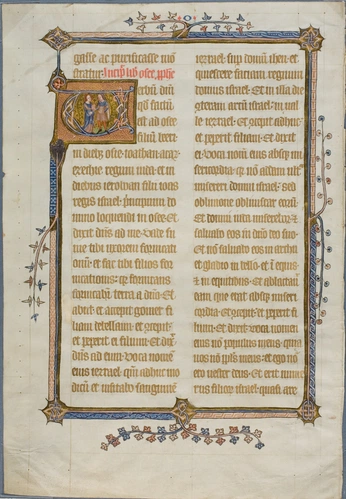 gasse ac purificasse mo
stratur. Incip lib osee pphe
erbū dn̄i
qd̄ factū
est ad osee
filiū beeri
in dieb; osie ioathan achaz
ezechie regum iuda et in
diebus ieroboam filii ioas
regis israel. principium do
mino loquendi in osee. Et
dixit dn̄s ad osee. Vade su
me tibi uxorem fornicati
onū. et fac tibi filios for
nicationum. quia fornicans
fornicabit̄ terra a dn̄o. Et
abiit et accepit gomer fi
liam debelaim. et concepit
et peperit ei filium. Et dix̄
dn̄s ad eum. voca nomen
eius iezrael. qm̄ adhuc mo
dicū et visitabo sanguinē
iezrael sup domū iheu. et
quiescere faciam regnum
domus israel. Et in illa die
conteram arcū israel in val
le iezrael. Et concepit adhuc
et peperit filiam. Et dixit
ei. voca nom̄ eius absq; mi
sericordia. q; nō addam ult̄
misereri domui israel. sed
oblivione obliviscar eorū.
Et domui iuda miserebor. &
saluabo eos in dn̄o deo suo.
Et nō saluabo eos in archu
et gladio in bello. et ī equis
& in equitibus. Et ablactau
eam que erat absq; miseri
cordia. Et concepit et peperit fi
lium. Et dixit. voca nomen
eius nō populus meus. quia
vos nō pp̄ls meus. et ego nō
ero vester deus. Et erit nume
rus filior̄ israel. quasi are